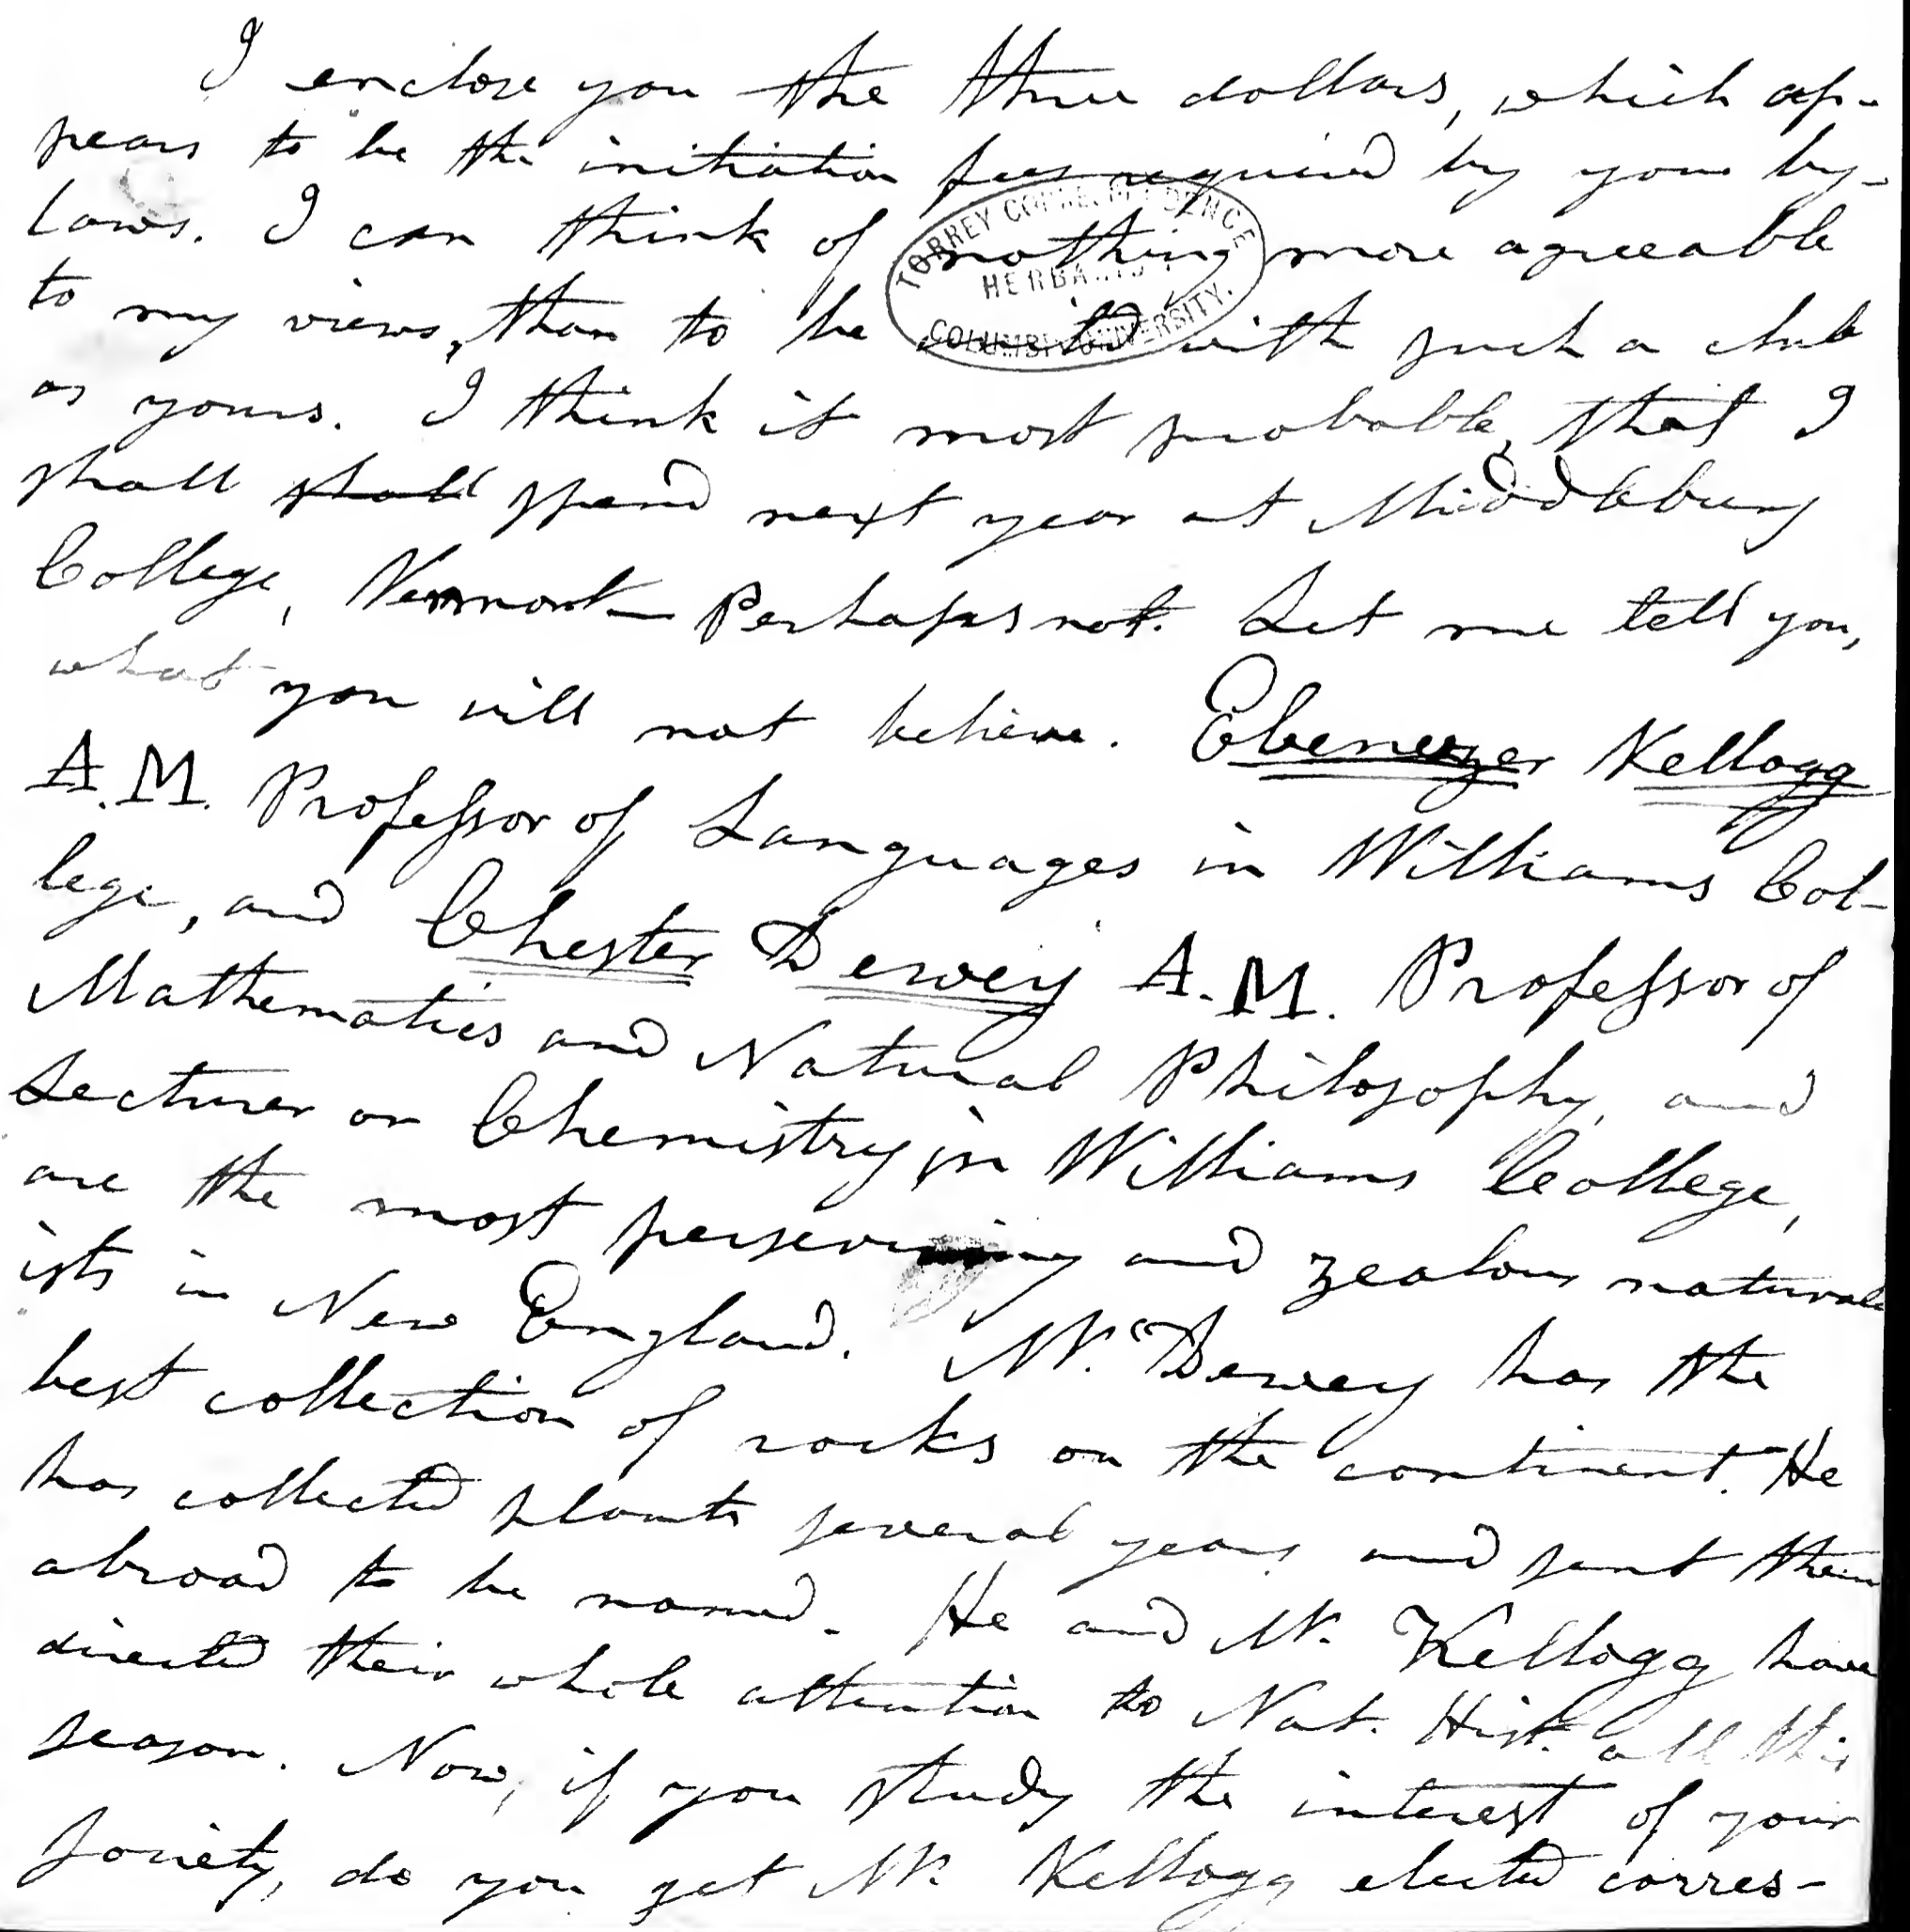 I enclose you the three dollars, which ap-
pears to be the initiation fees required by your by-
laws. I can think of nothing more agreeable
to my views, than to be with such a club
as yours. I think it most probable, that I
shall shall spend next year at Middlebury
College, Vermont— Perhaps not. Let me tell you,
what you will not believe. Ebenezer Kellogg
A.M. Professor of Languages in Williams Col-
lege, and Chester Dewey A.M. Professor of
Mathematics and Natural Philosophy, and
Lecturer on Chemistry in Williams College,
are the most persevering and zealous natural
ists in New England. Mr. Dewey has the
best collection of rocks on the continent. He
has collected plants several years and sent them
abroad to be named. He and Mr. Kellogg have
directed their whole attention to Nat. Hist. all this
season. Now, if you study the interest of your
Society, do you get Mr. Kellogg elected corres-
TORREY CORRESPONDENCE
HERBARIUM
COLUMBIA UNIVERSITY.